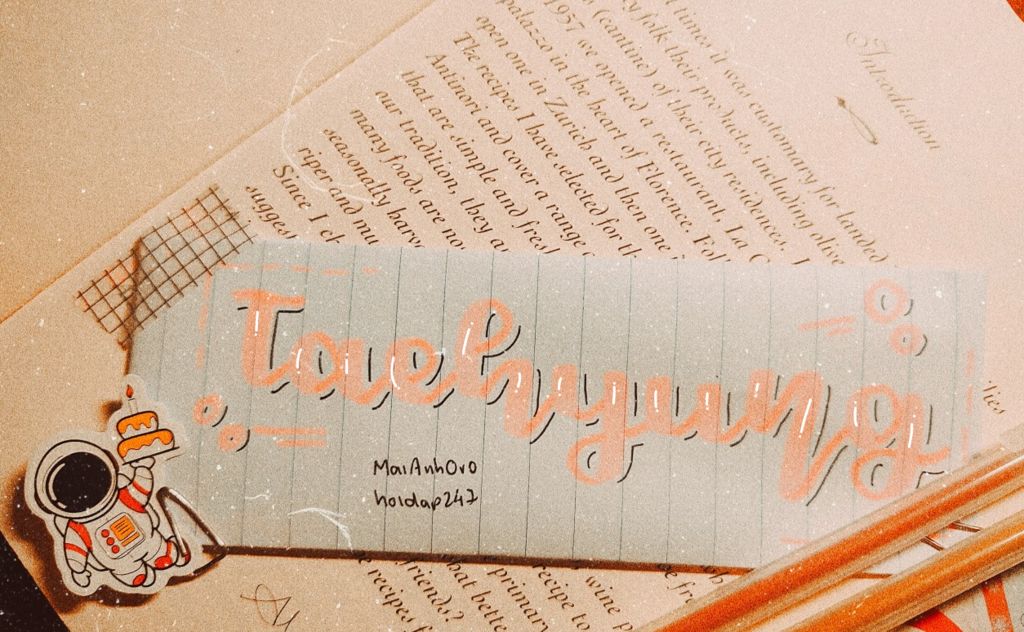 Introduction
times it was customary for landed
folk their products, including olive
(cantine) of their city residences. I
1957 we opened a restaurant, La C
palazzo in the heart of Florence. Fol
open one in Zurich and then one i
The recipes I have selected for th
Antinori and cover a range o
that are simple and fresh
our tradition, they a
many foods are no
seasonally harv
riper and mu
Since I ch
sugges
Taehyung
MaiAnh0v0
hoidap247
Ties
wine p
recipe to
primary
hat better
friends?
e recipes f